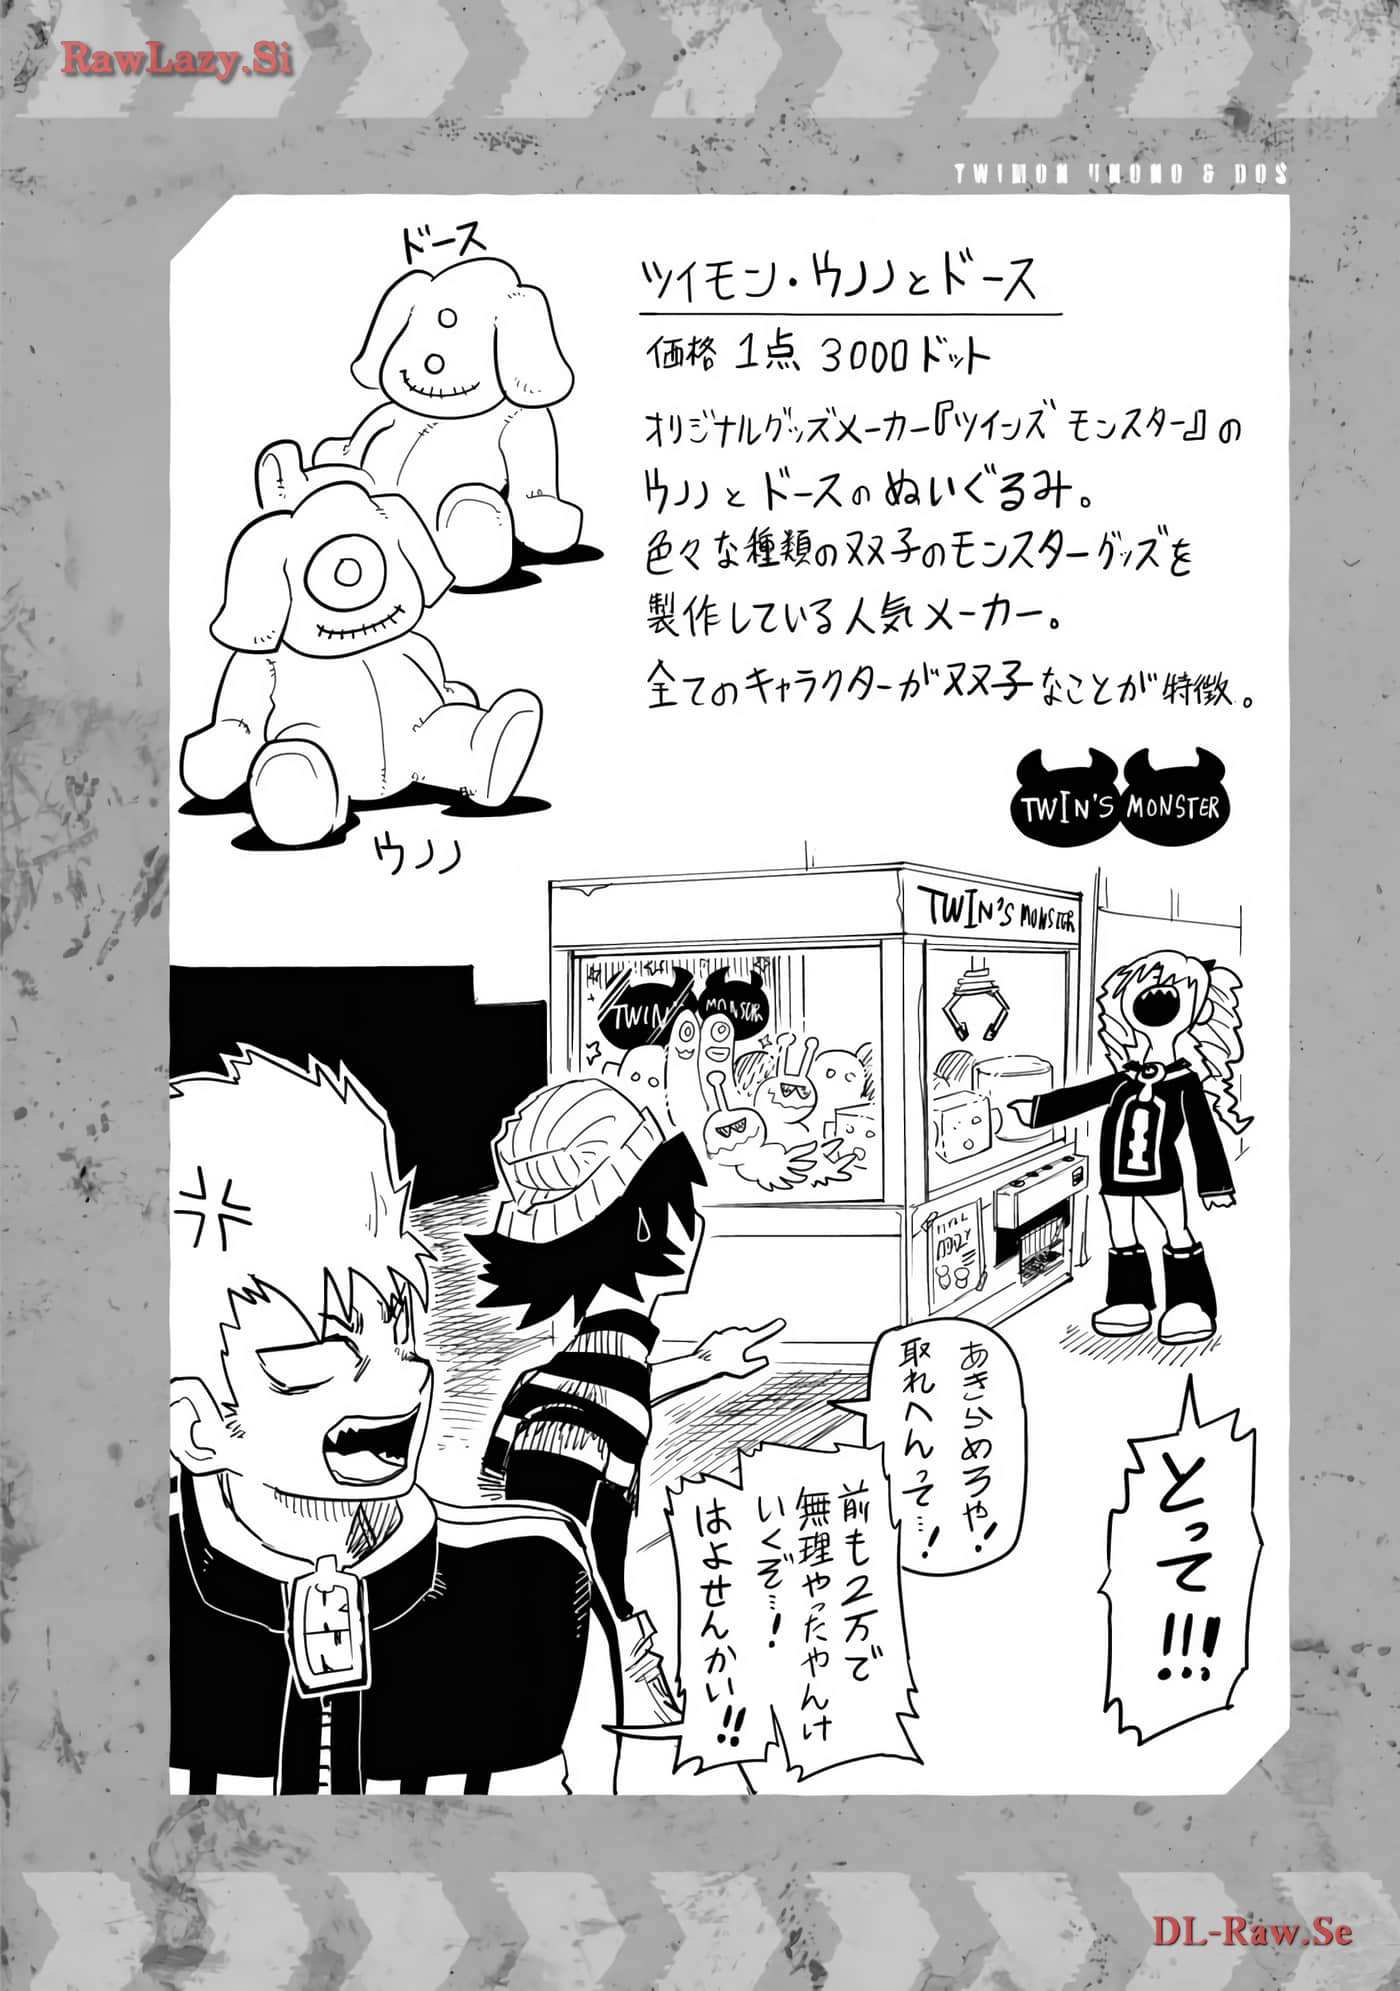 RawLazy.Si
TWIMON UNONO & DOS
ドース
ツイモン・ウノノとドース
価格 1点 3000ドット
オリジナルグッズメーカー『ツインズ モンスター』の
ウノノとドースのぬいぐるみ。
色々な種類の双子のモンスターグッズを
製作している人気メーカー。
全てのキャラクターが双子なことが特徴。
TWIN'S MONSTER
ウノノ
TWIN'S MONSTER
TWIN'S MONSTER
とって!!!
あきらめろや!
取れへんって…!
前も2万で
無理やったやんけ
いくぞ…!
はよせんかい!!
DL-Raw.Se